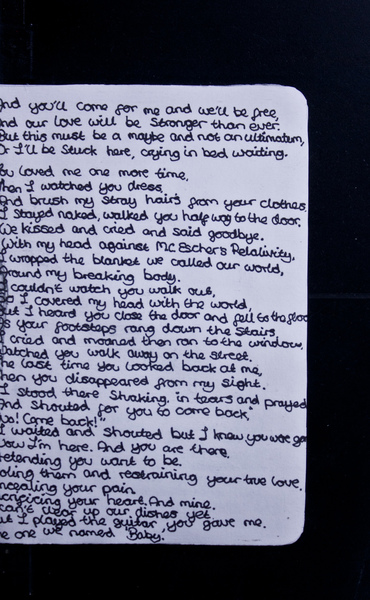 And you'll come for me and we'll be free,
And our love will be stronger than ever.
But this must be a maybe and not an ultimatum,
Or I'll be stuck here, crying in bed waiting.
You loved me one more time,
Then I watched you dress
And brush my stray hairs from your clothes.
I stayed naked, walked you half way to the door.
We kissed and cried and said goodbye.
With my head against MC Escher's Relativity,
I wrapped the blanket we called our world,
Around my breaking body.
I couldn't watch you walk out,
So I covered my head with the world,
But I heard you close the door and fell to the floor
As your footsteps rang down the stairs.
I cried and moaned then ran to the window,
Watched you walk away on the street.
The last time you looked back at me,
Then you disappeared from my sight.
I stood there shaking, in tears and prayed
And shouted for you to come back,
"No! Come back!"
I waited and shouted but I knew you were gon
Now I'm here. And you are there.
Pretending you want to be.
oling them and restraining your true love.
ncealing your pain
acrificing your heart. And mine.
can't clear up our dishes yet
ut I played the guitar you gave me.
he one we named 'Baby.'